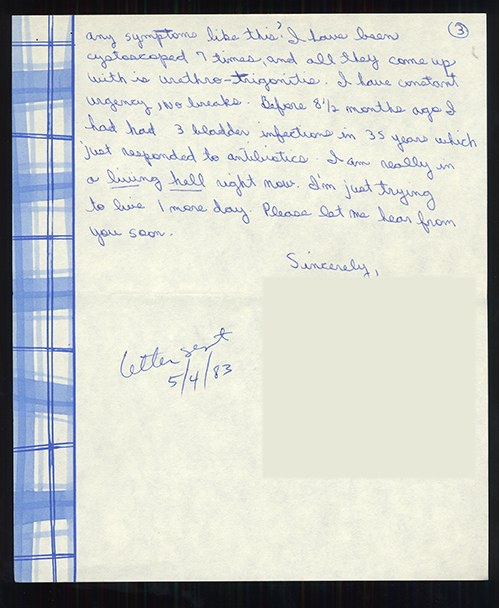 ③
any symptoms like this? I have been
cystoscoped 7 times, and all they come up
with is urethro-trigonitis. I have constant
urgency, No breaks. Before 8½ months ago I
had had 3 bladder infections in 35 years which
just responded to antibiotics. I am really in
a living hell right now. I'm just trying
to live 1 more day. Please let me hear from
you soon.
Sincerely,
letter sent
5/4/83